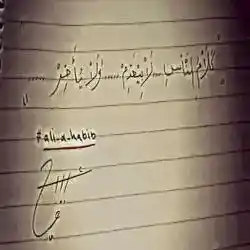 كلام الناس ... لا يقدم ..... ولا يأخر .....
#ali-a-habib